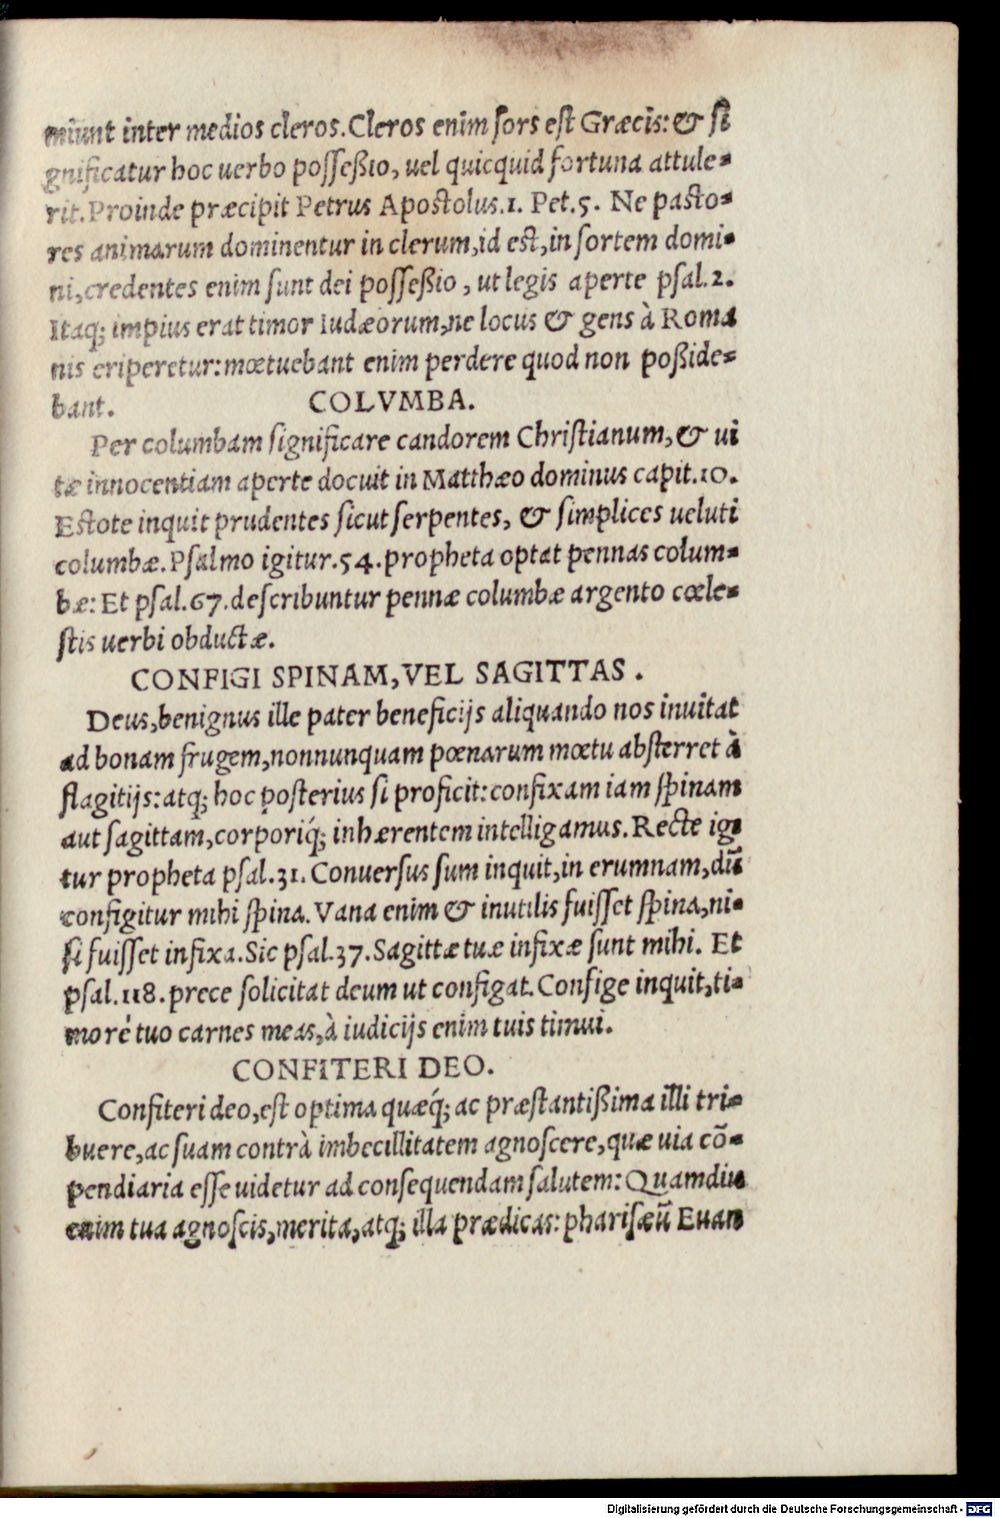 miunt inter medios cleros. Cleros enim sors est Græcis: & si
gnificatur hoc uerbo posseßio, uel quicquid fortuna attule-
rit. Proinde præcipit Petrus Apostolus. 1. Pet. 5. Ne pasto-
res animarum dominentur in clerum, id est, in sortem domi-
ni, credentes enim sunt dei posseßio, ut legis aperte psal. 2.
Itaq; impius erat timor Iudæorum, ne locus & gens à Roma
nis eriperetur: mœtuebant enim perdere quod non poßide-
bant. COLVMBA.
Per columbam significare candorem Christianum, & ui
tæ innocentiam aperte docuit in Matthæo dominus capit. 10.
Estote inquit prudentes sicut serpentes, & simplices ueluti
columbæ. Psalmo igitur. 54. propheta optat pennas colum-
bæ: Et psal. 67. describuntur pennæ columbæ argento cœle-
stis uerbi obductæ.
CONFIGI SPINAM, VEL SAGITTAS.
Deus, benignus ille pater beneficijs aliquando nos inuitat
ad bonam frugem, nonnunquam pœnarum mœtu absterret à
flagitijs: atq; hoc posterius si proficit: confixam iam spinam
aut sagittam, corporiq́; inhærentem intelligamus. Recte igi
tur propheta psal. 31. Conuersus sum inquit, in erumnam, dū
configitur mihi spina. Vana enim & inutilis fuisset spina, ni-
si fuisset infixa. Sic psal. 37. Sagittæ tuæ infixæ sunt mihi. Et
psal. 118. prece solicitat deum ut configat. Confige inquit, ti-
morē tuo carnes meas, à iudicijs enim tuis timui.
CONFITERI DEO.
Confiteri deo, est optima quæq́; ac præstantißima illi tri-
buere, ac suam contrà imbecillitatem agnoscere, quæ uia cō-
pendiaria esse uidetur ad consequendam salutem: Quamdiu
enim tua agnoscis, merita, atq; illa prædicas: pharisæū Euan
Digitalisierung gefördert durch die Deutsche Forschungsgemeinschaft - DFG